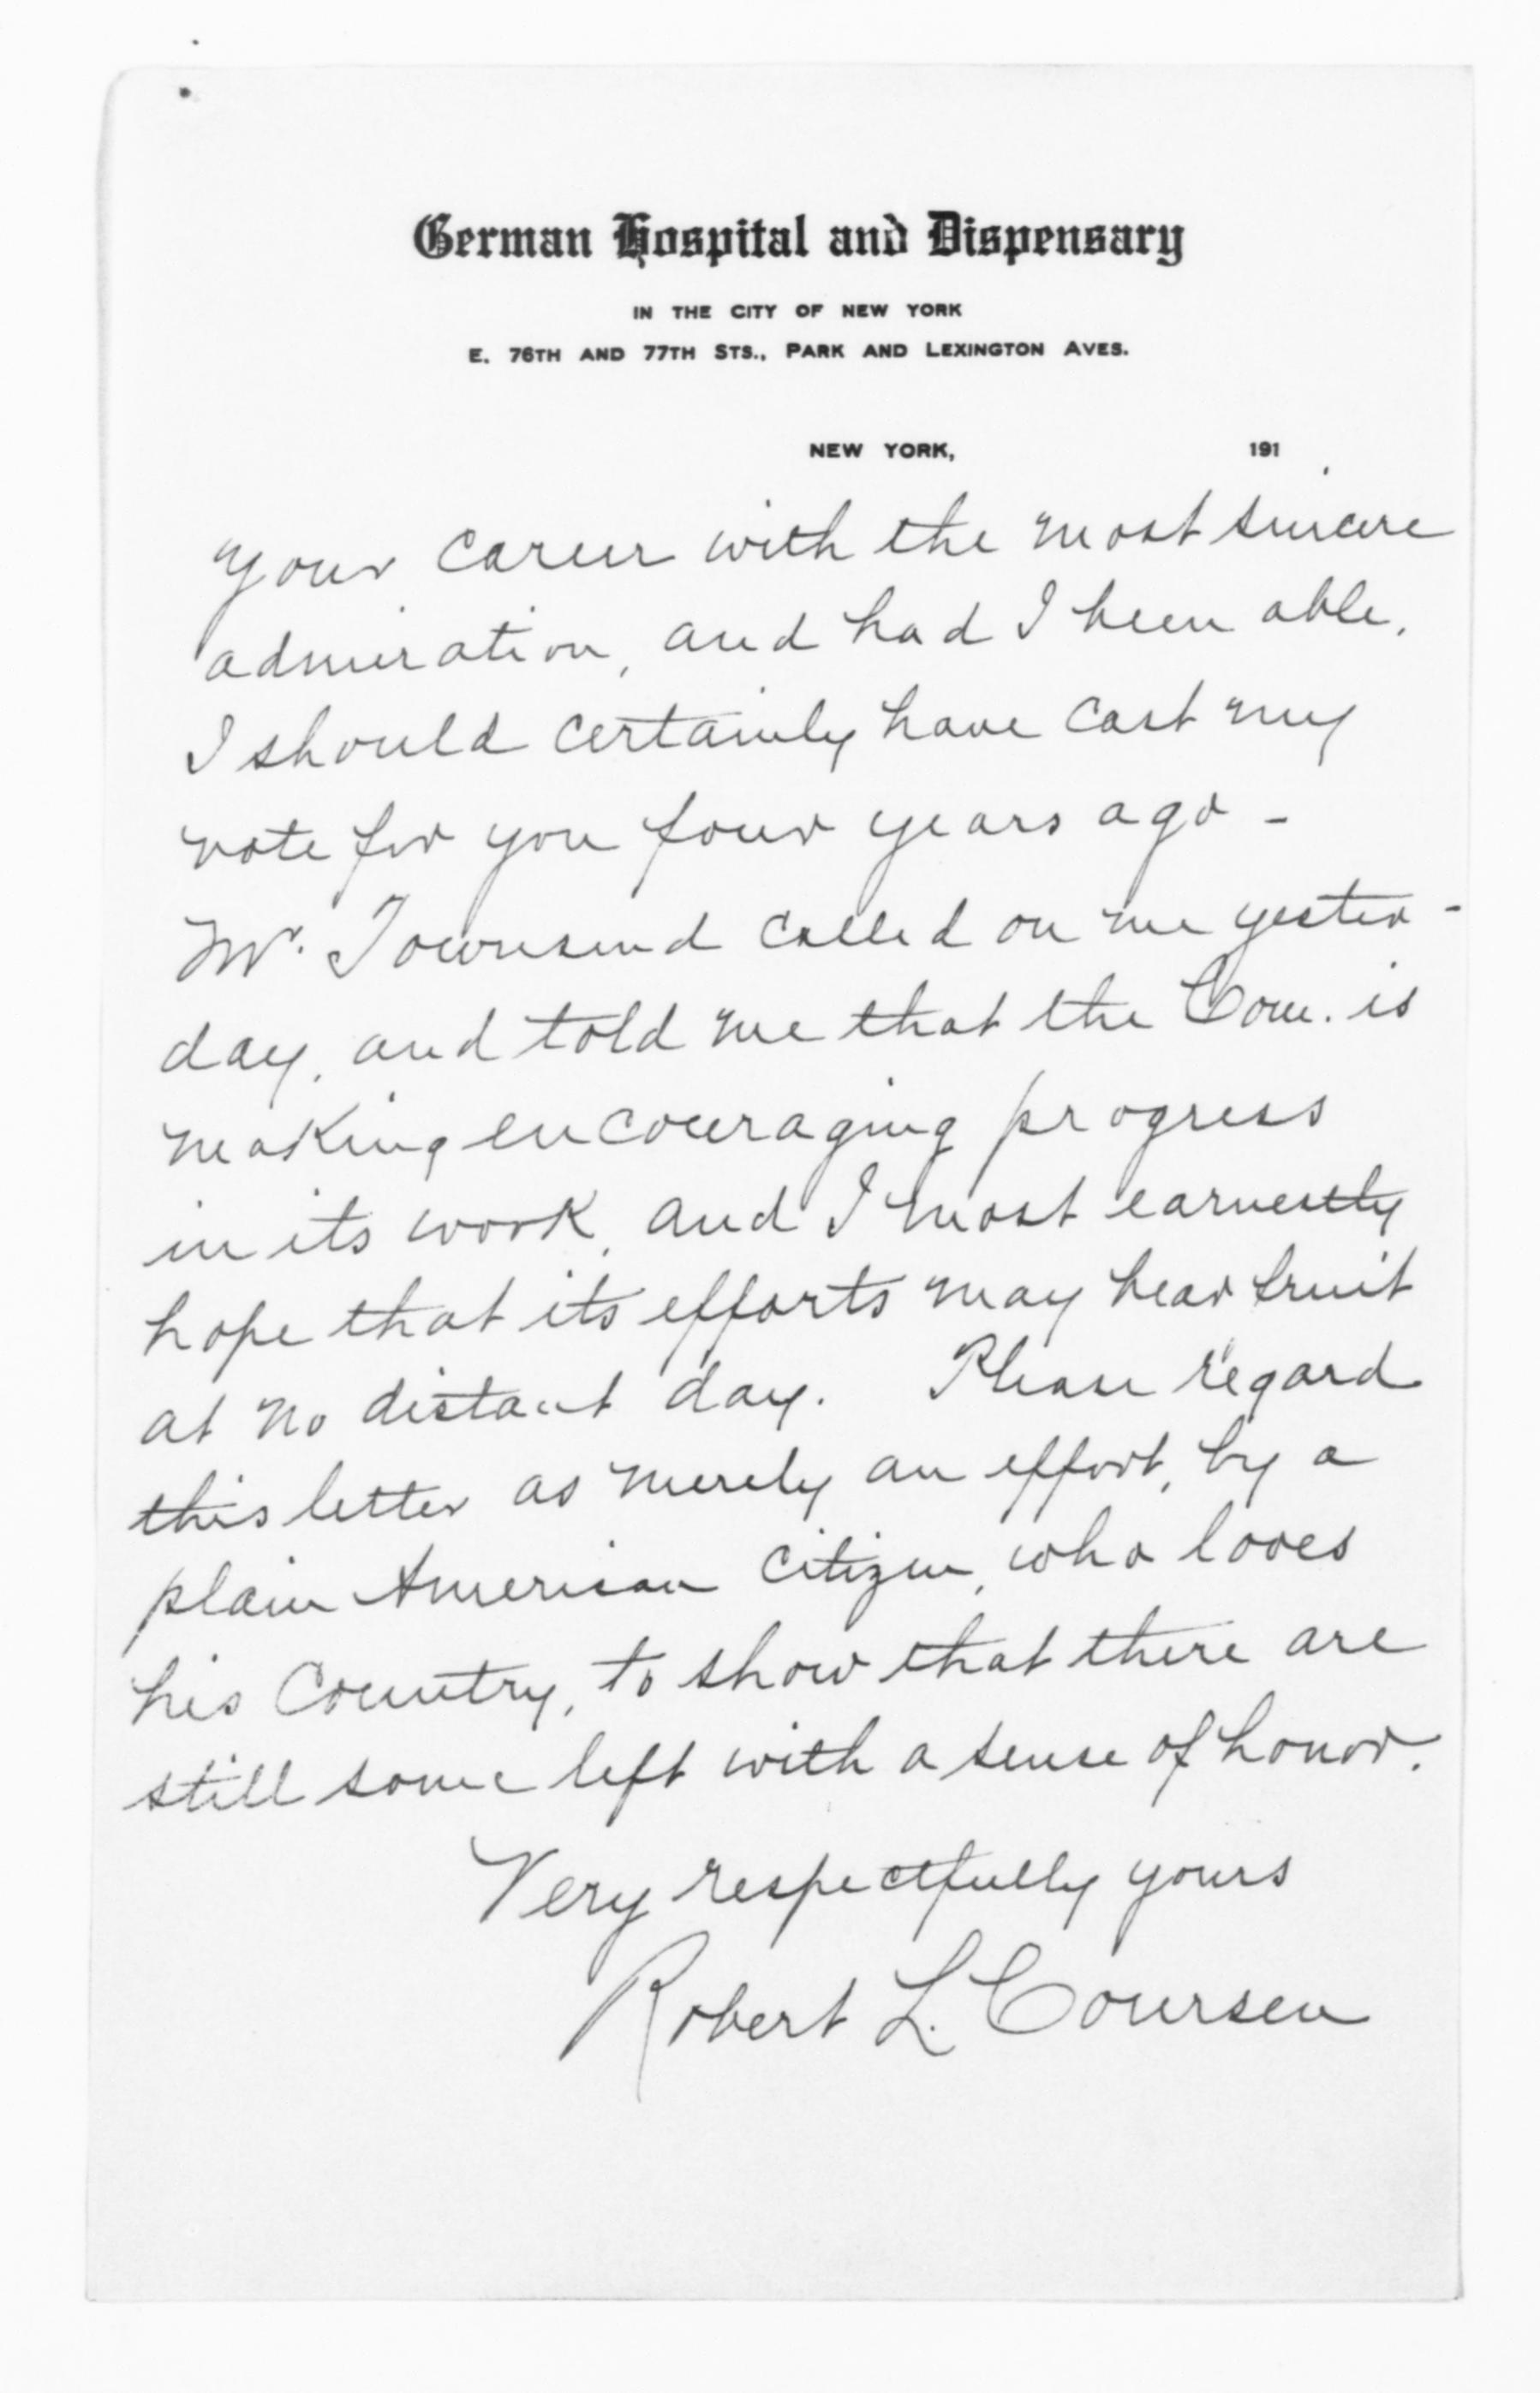 German Hospital and Dispensary
IN THE CITY OF NEW YORK
E. 76TH AND 77TH STS., PARK AND LEXINGTON AVES.
NEW YORK, 191
your career with the most sincere
admiration, and had I been able,
I should certainly have cast my
vote for you four years ago -
Mr. Townsend called on me yester-
day, and told me that the Com. is
making encouraging progress
in its work, and I most earnestly
hope that its efforts may bear fruit
at no distant day. Please regard
this letter as merely an effort, by a
plain American citizen, who loves
his Country, to show that there are
still some left with a sense of honor.
Very respectfully yours
Robert L. Coursen